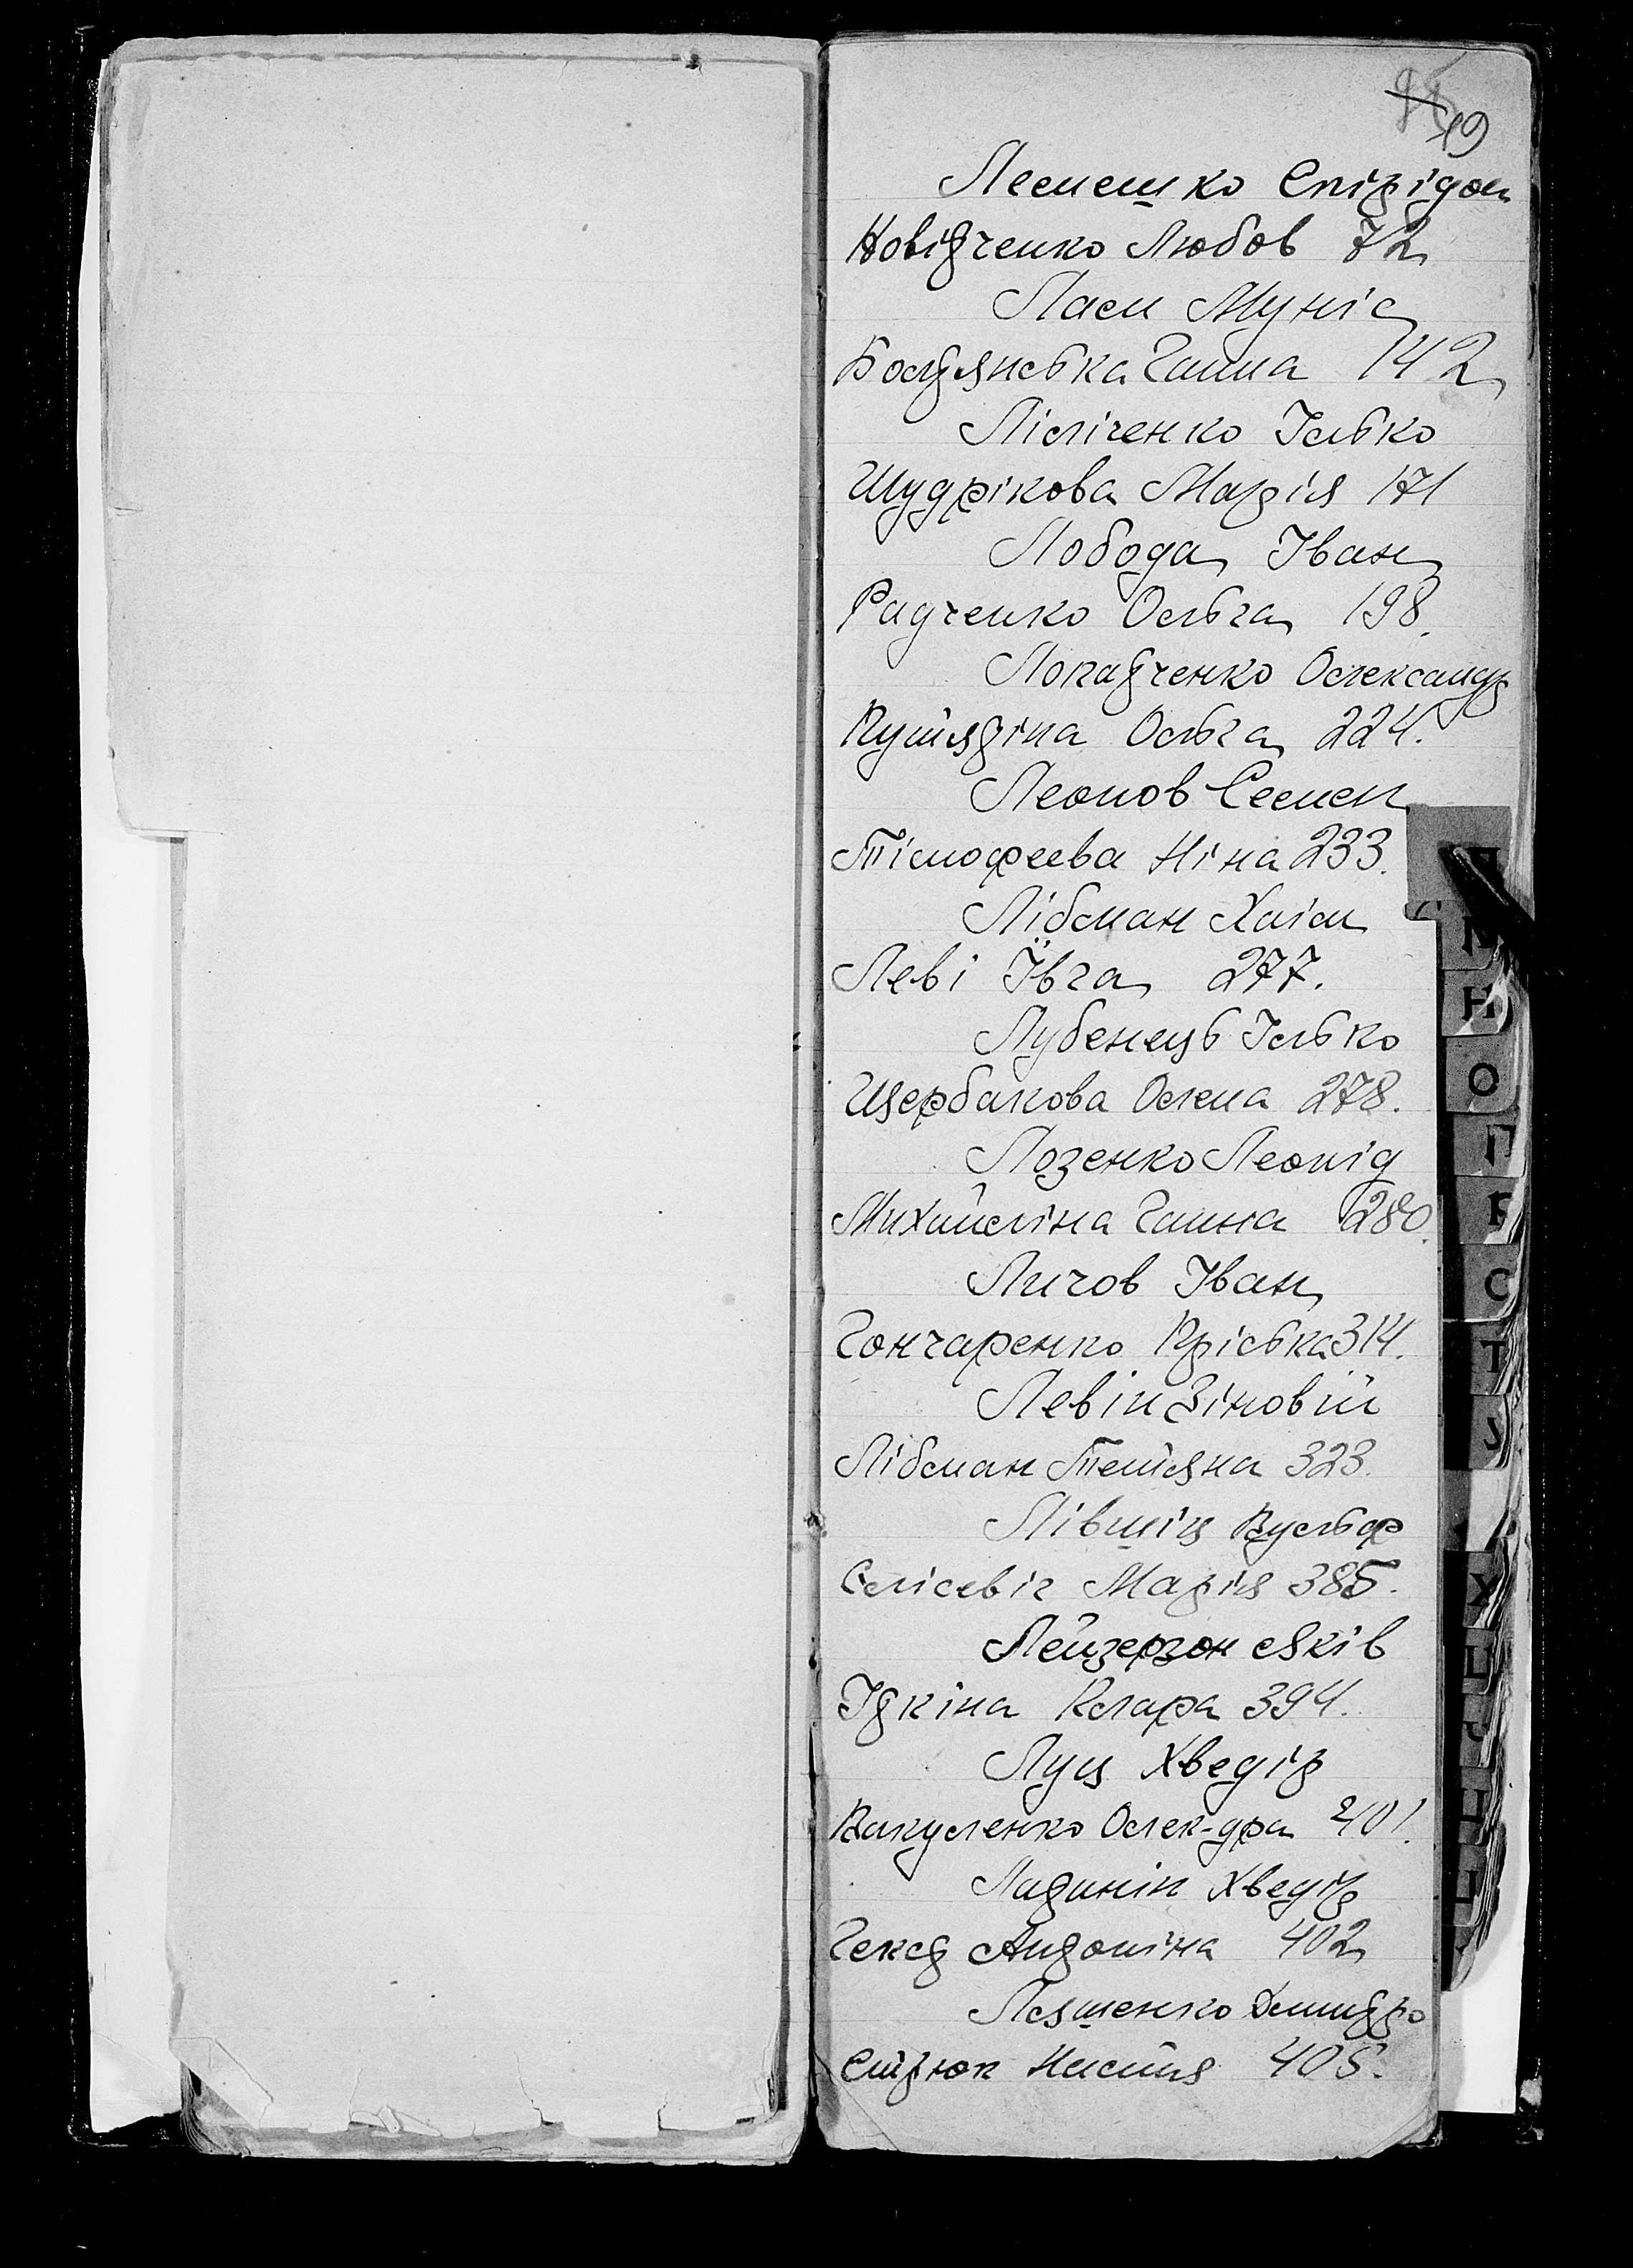 19
Лемешко Спірідон
Новідченко Любов 72
Лаем Муніс
Болдянська Ганна 142
Ліліченко Ілько
Шудрікова Марія 171
Лобода Іван
Радченко Ольга 198.
Лопатченко Олександр
Путятіна Ольга 224.
Леонов Семен
Тімофеева Ніна 233.
Лібман Хаім
Леві Ївга 277.
Лубенець Ілько
Щербакова Олена 278.
Лозенко Леонід
Михайліна Ганна 280.
Личов Іван
Гончаренко Пріська 314.
Левін Зіновій
Лібман Тетяна 323.
Лівшіц Вульф
Слісевіч Марія 385.
Лейзерзон Яків
Ідкіна Клара 394.
Луц Хведір
Вакуленко Олек-дра 401.
Ладинін Хведір
Антоніна 402
Ляшенко Дмитро
Настя 405.
М
Н
О
П
Р
С
Т
У
Х
Ц
Ч